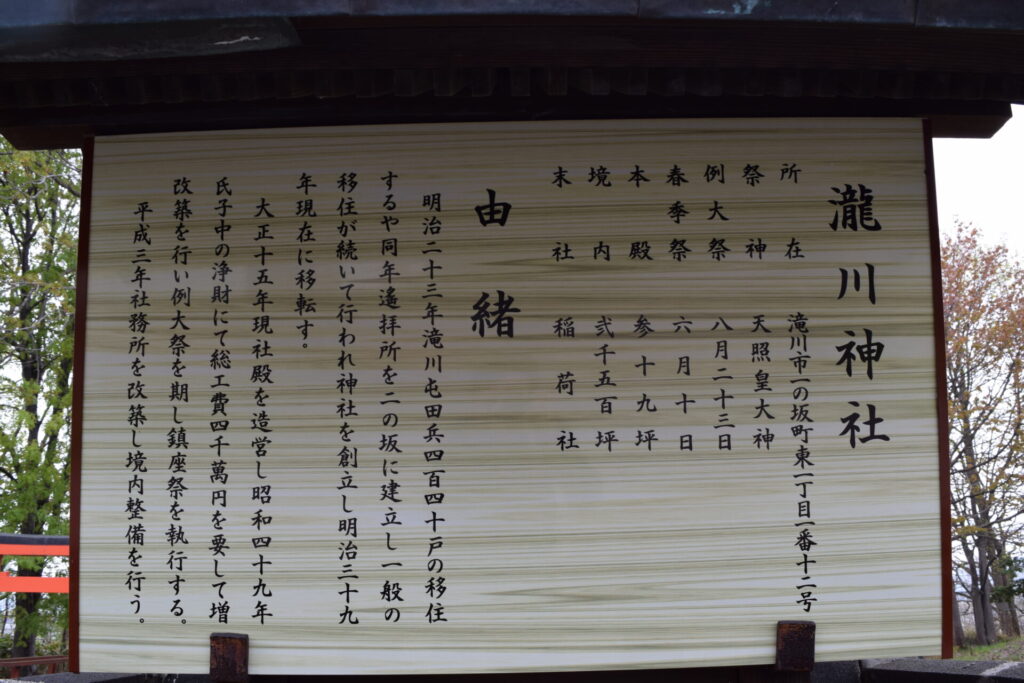 瀧川神社
所在 滝川市一の坂町東一丁目一番十二号
祭神 天照皇大神
例大祭 八月二十三日
春季祭 六月十日
本殿 参十九坪
境内 弐千五百坪
末社 稲荷社
由緒
明治二十三年滝川屯田兵四百四十戸の移住
するや同年遙拝所を二の坂に建立し一般の
移住が続いて行われ神社を創立し明治三十九
年現在に移転す。
大正十五年現社殿を造営し昭和四十九年
氏子中の浄財にて総工費四千萬円を要して増
改築を行い例大祭を期し鎮座祭を執行する。
平成三年社務所を改築し境内整備を行う。